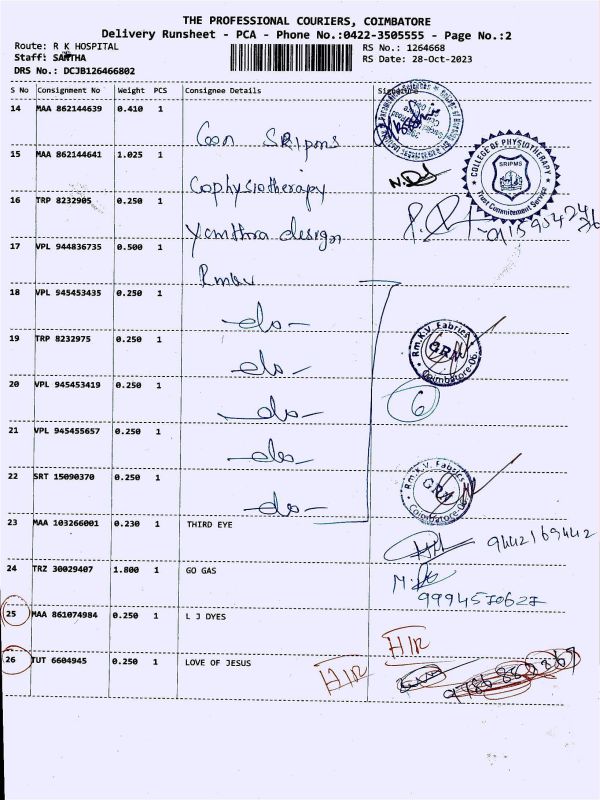 THE PROFESSIONAL COURIERS, COIMBATORE
Delivery Runsheet - PCA - Phone No.:0422-3505555 - Page No.:2
Route: R K HOSPITAL
RS No.: 1264668
Staff: SANTHA
RS Date: 28-Oct-2023
DRS No.: DCJB126466802
S No Consignment No Weight PCS Consignee Details Signature
14 MAA 862144639 0.410 1 Con SRipms
15 MAA 862144641 1.025 1 Cophysiotherapy
COLLEGE OF PHYSIOTHERAPY
SRIPMS
Trust Commitment Service
16 TRP 8232905 0.250 1 design
17 VPL 944836735 0.500 1 Rmkv
18 VPL 945453435 0.250 1 -do-
19 TRP 8232975 0.250 1 -do-
Rm.K.V. Fabrics
GRN
Coimbatore-06.
20 VPL 945453419 0.250 1 -do-
6
21 VPL 945455657 0.250 1 -do-
22 SRT 15090370 0.250 1 -do-
Rm.K.V. Fabrics
GRN
Coimbatore-06.
23 MAA 103266001 0.230 1 THIRD EYE 9442169442
24 TRZ 30029407 1.800 1 GO GAS
9994570627
25 MAA 861074984 0.250 1 L J DYES H/R
26 TUT 6604945 0.250 1 LOVE OF JESUS H/R